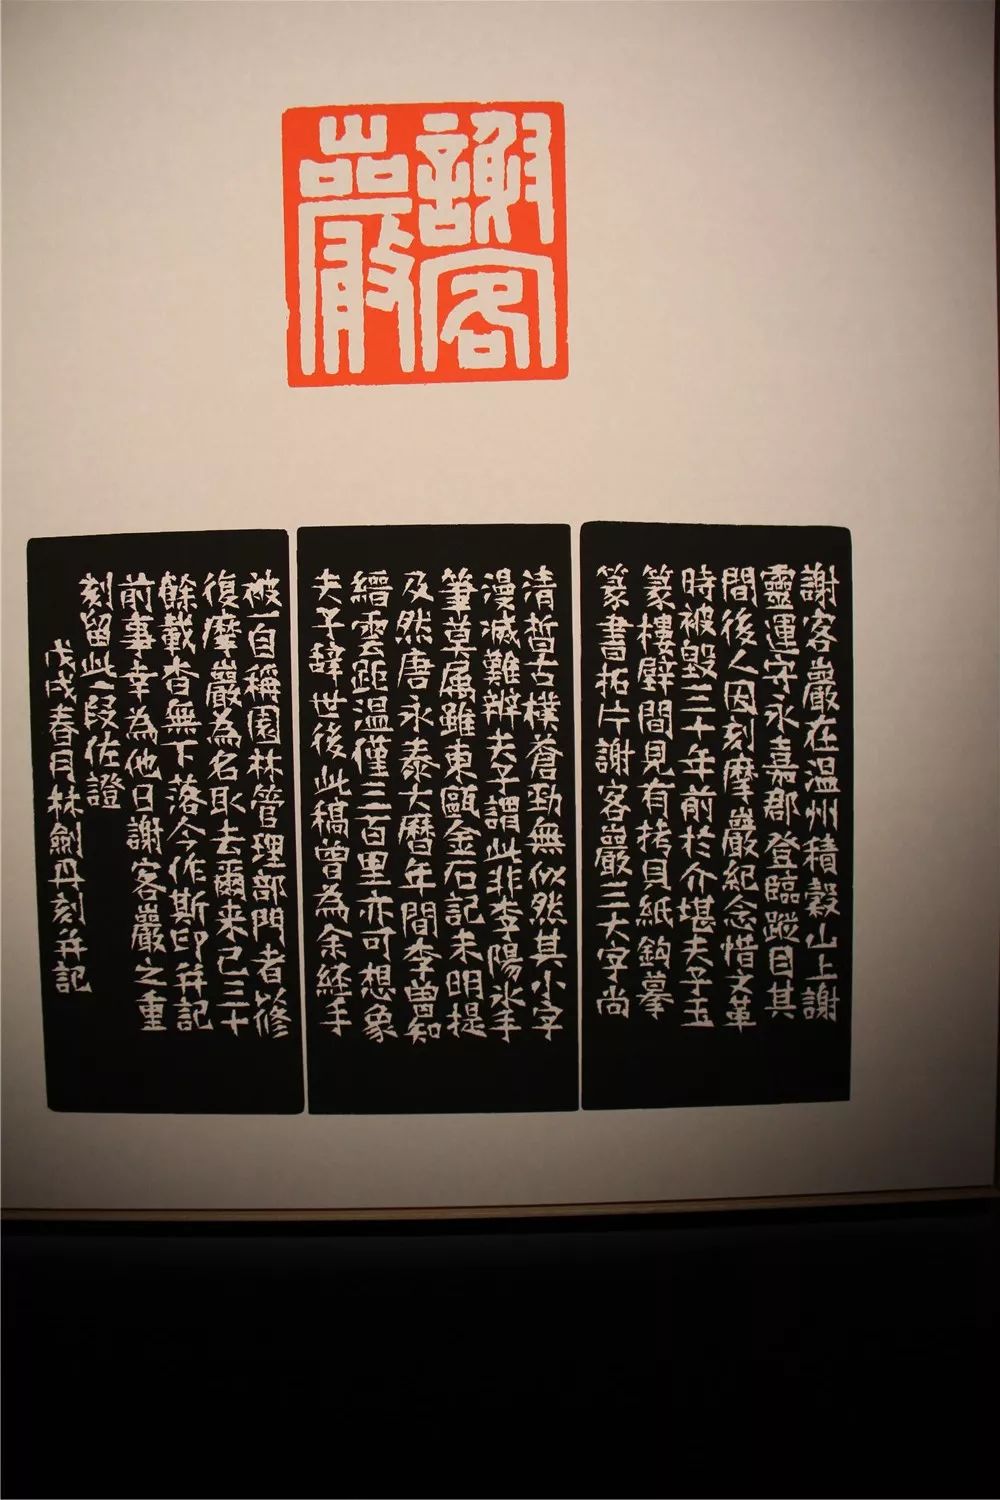 謝客巖
謝客巖在温州積穀山上謝
靈運守永嘉郡登臨蹤目其
間後人因刻摩巖紀念惜文革
時被毀三十年前於介堪夫子玉
篆樓壁間見有拷貝紙鈎摹
篆書拓片謝客巖三大字尚
清晢古樸蒼勁無似然其小字
漫滅難辨夫子謂此非李陽冰手
筆莫属雖東甌金石記未明提
及然唐永泰大曆年間李曽知
縉雲距温僅三百里亦可想象
夫子辞世後此稿曽為余経手
被一自稱園林管理部門者以修
復摩巖為名取去爾来已三十
餘載杳無下落今作斯印并記
前事幸為他日謝客巖之重
刻留此一段佐證
戊戌春月林劍丹刻并記